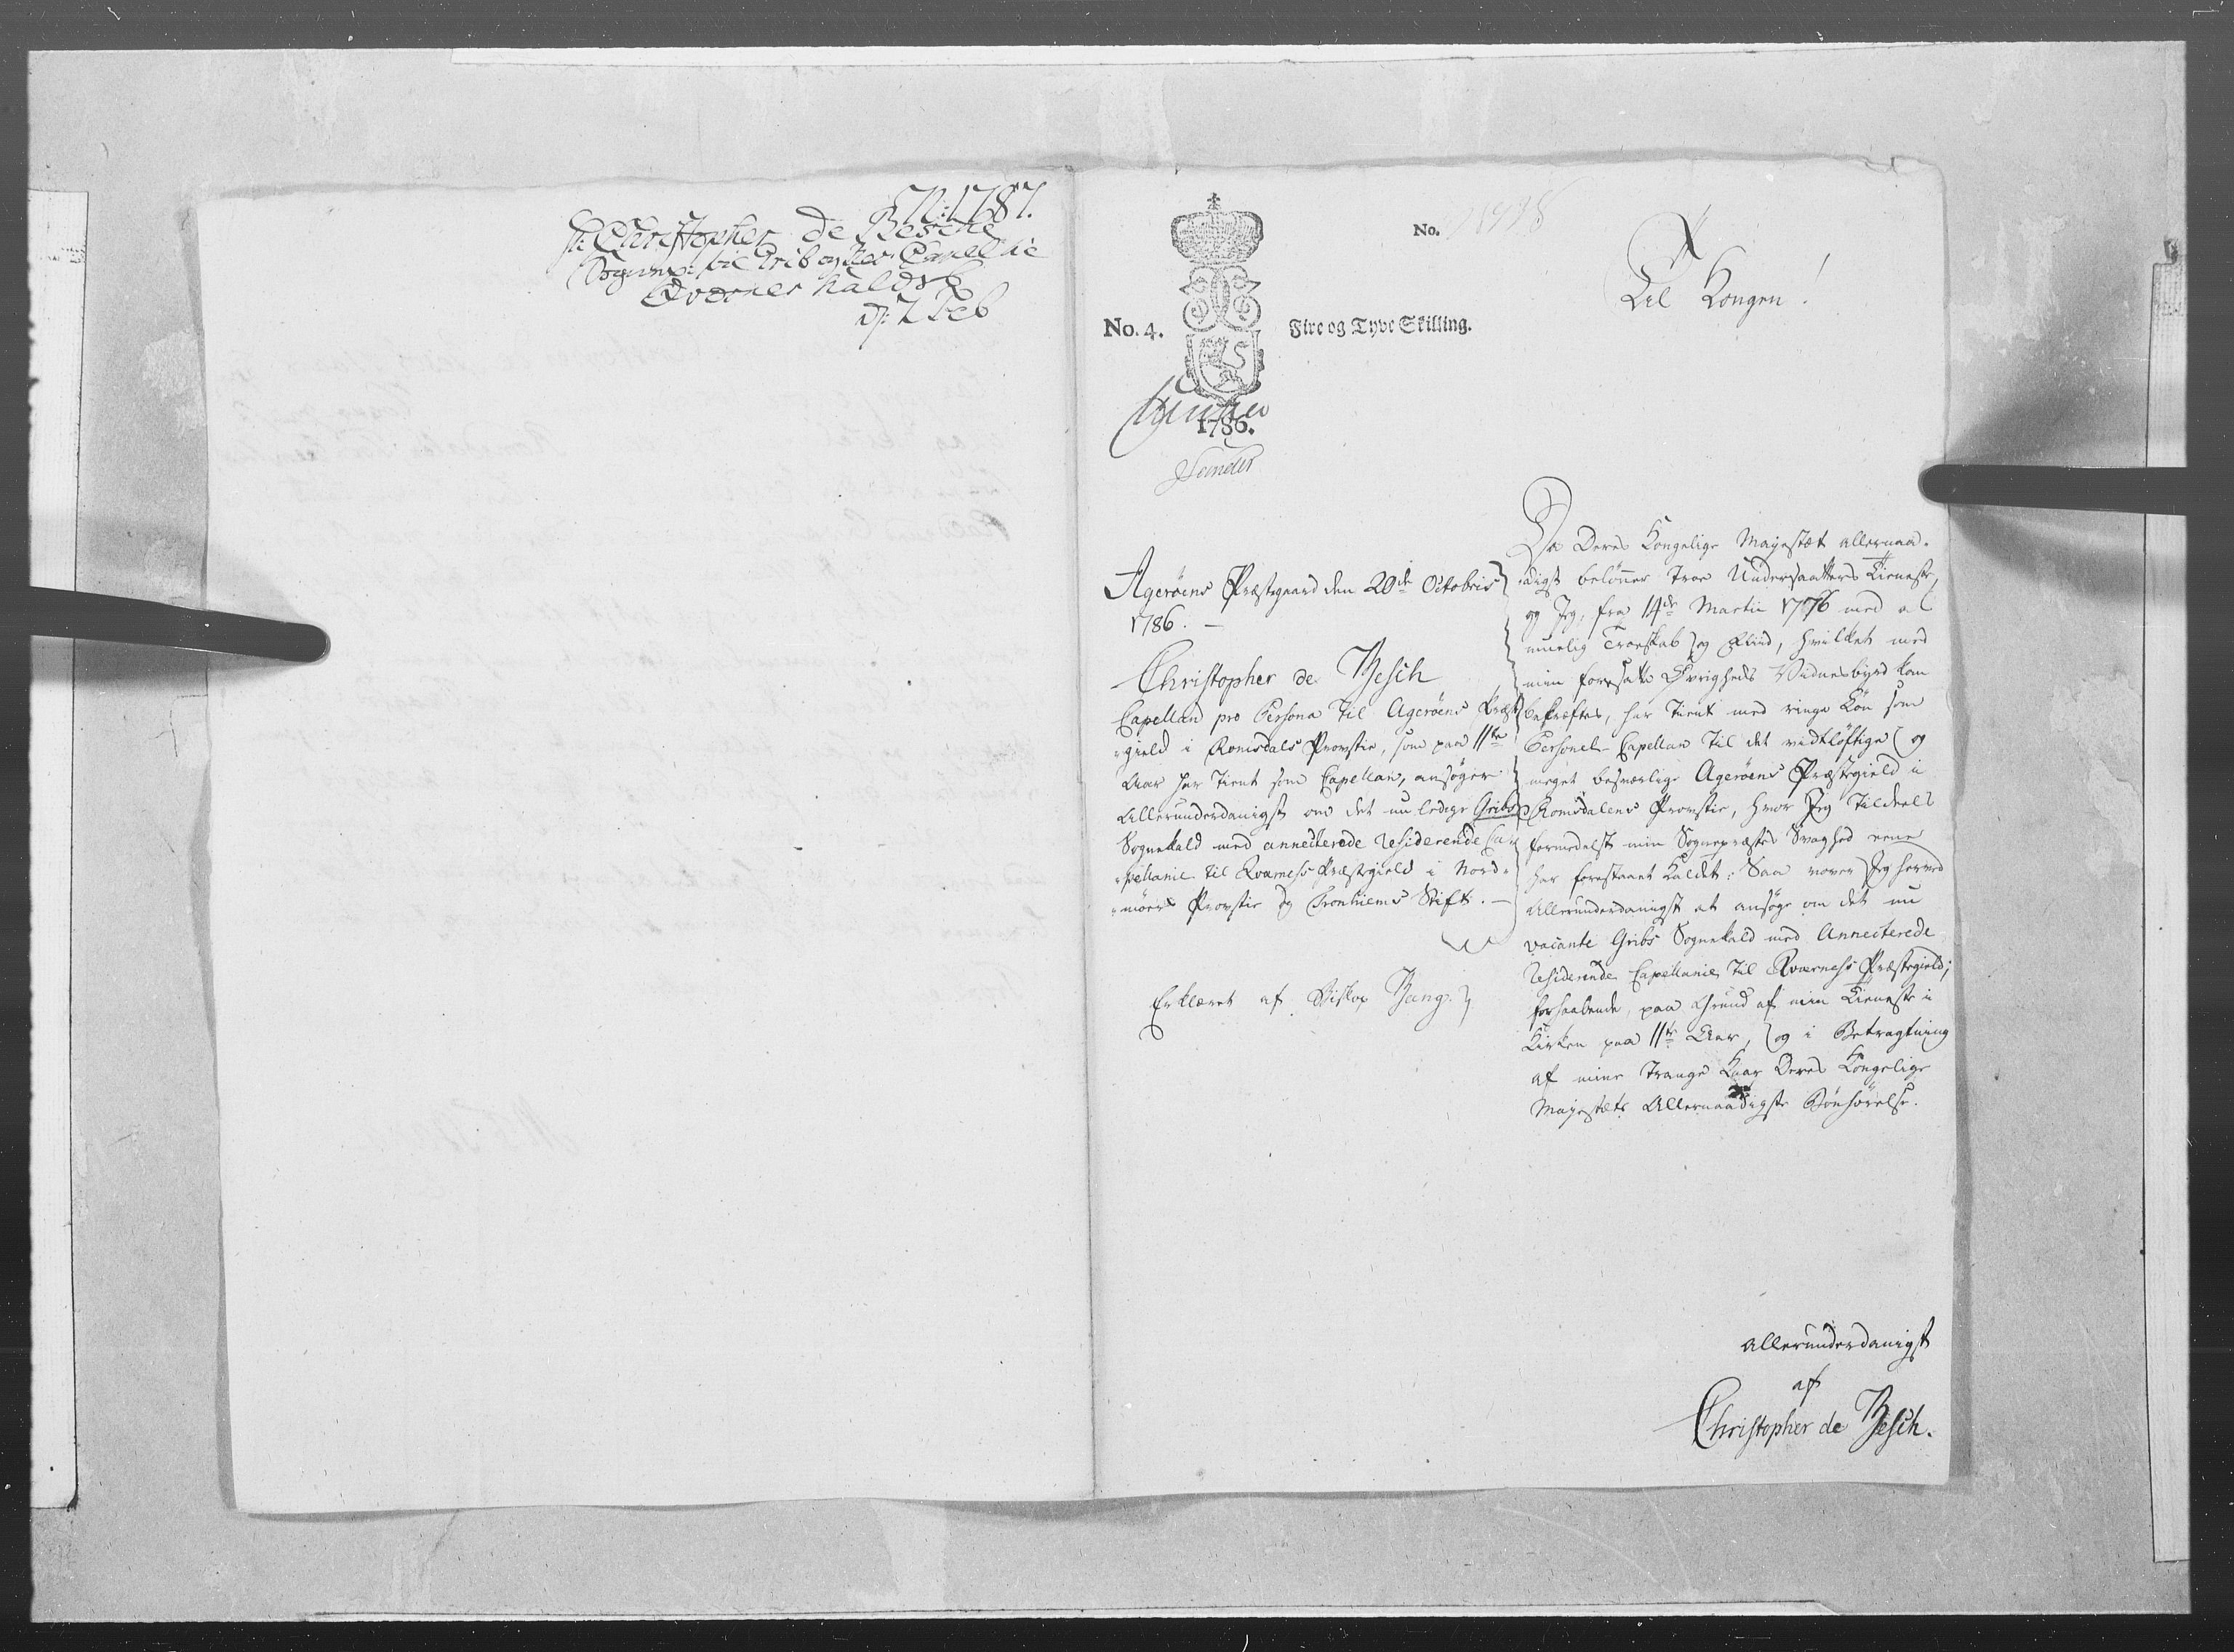 N: 1787.
Hr: Christopher de Besche
Sogneprs: til Grib og Res: Capel til
Qvernes Kaldsb
D: 7 Feb
No.
No. 4.
Fire og Tyve Skilling.
1786.
Til Kongen!
Agerøens Præstegaard den 20de Octobris
1786. —
Christopher de Besch
Capellan pro Persona til Agerøens Præste
-gield i Romsdals Provstie, som paa 11te
Aar har tient som Capellan, ansøger
Allerunderdanigst om det nu ledige Gribs
Sognekald med annecterede residerende Ca-
-pellanie til Qvarness Præstegield i Nord-
-møers Provstie og Tronhiems Stift. —
Erklæret af Biskop Bang.
Da Deres Kongelige Mayestæt allernaa-
-digst belønner troe Undersaatters Tieneste,
og Jeg, fra 14de Martii 1776 med al
muelig Troeskab og Fliid, hvilket med
min foresatte Øvrigheds Vidnesbyrd kan
bekræftes, har tient med ringe Løn som
Personel-Capellan til det vidtløftige og
meget besværlige Agerøens Præstegield i
Romsdalens Provstie, hvor Jeg tildeels
formedelst min Sognepræstes Svaghed ene
har forestaaet Kaldet: Saa vover Jeg herved
Allerunderdanigst at ansøge om det nu
vacante Gribs Sognekald med Annecterede
residerende Capellanie til Qvarness Præstegield;
forhaabende, paa Grund af min Tieneste i
Kirken paa 11te Aar, og i Betragtning
af mine trange Kaar Deres Kongelige
Mayestæts Allernaadigste Bønhørelse.
Allerunderdanigst
af
Christopher de Besch.